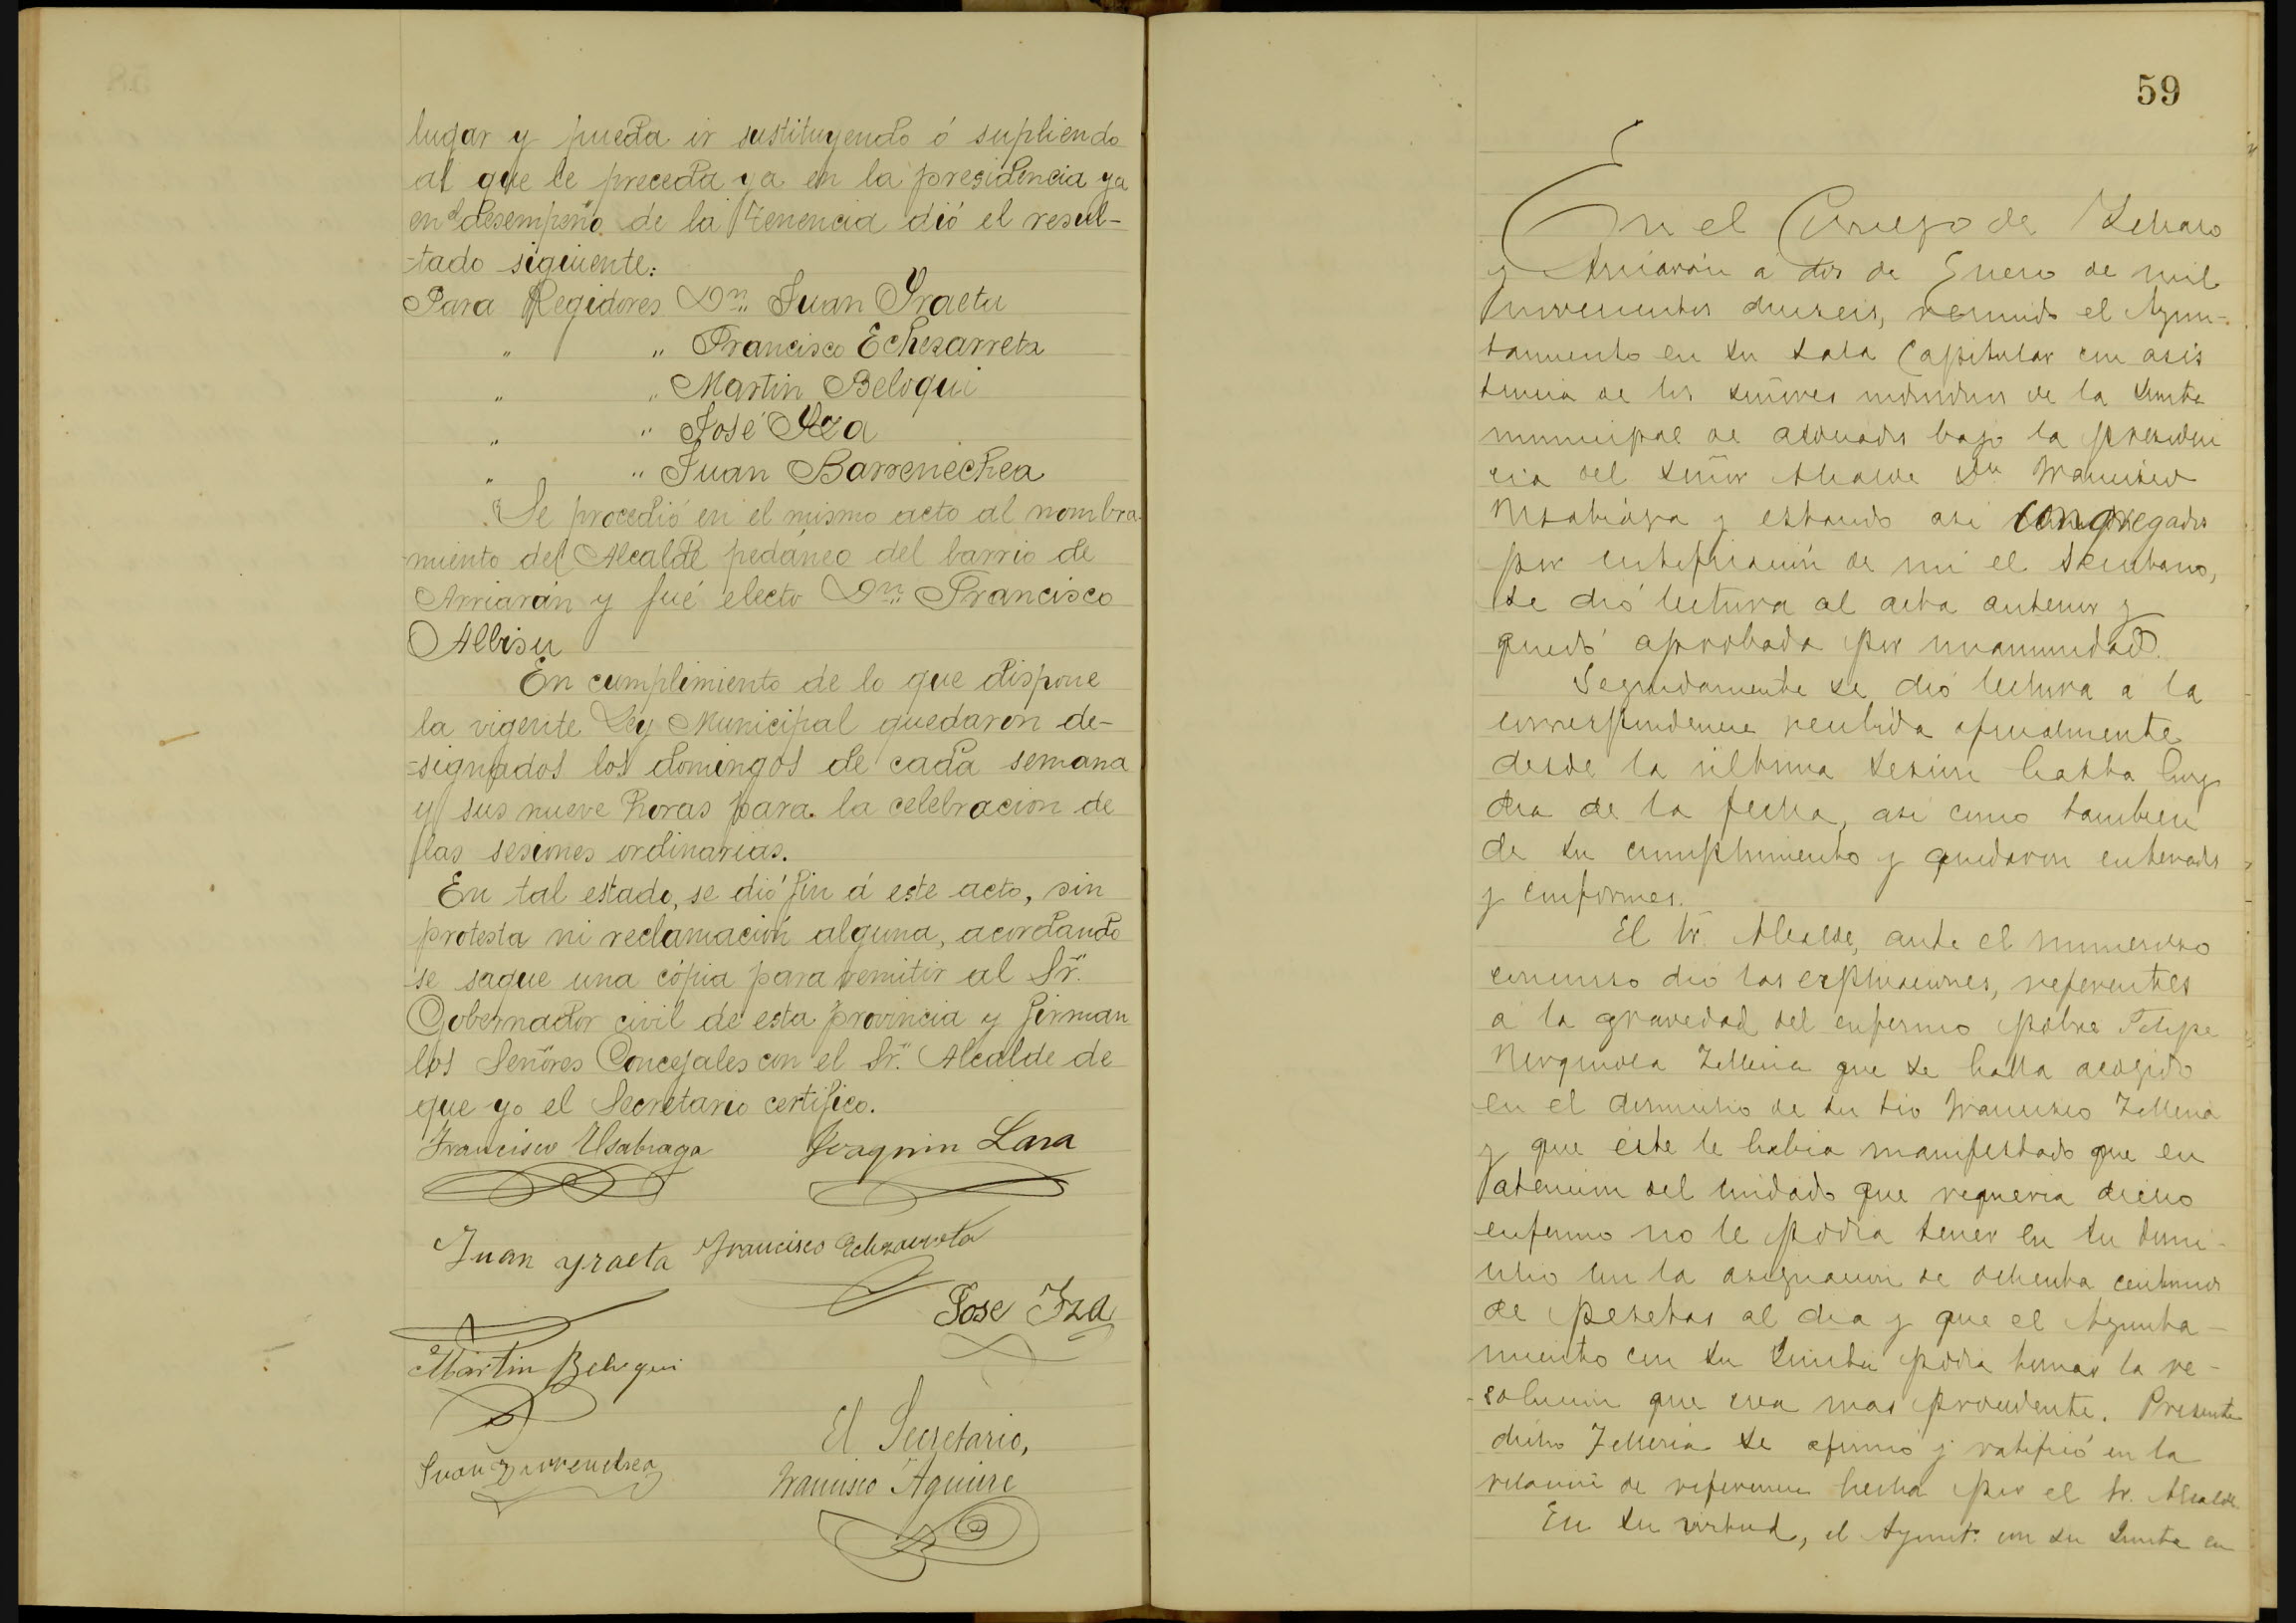 lugar y pueda ir sustituyendo ó supliendo
al que le preceda ya en la presidencia ya
en el desempeño de la Tenencia dió el resul-
-tado siguiente:
Para Regidores Dn. Juan Yraeta
" " Francisco Echezarreta
" " Martin Beloqui
" " José Yza
" " Juan Barrenechea
Se procedió en el mismo acto al nombra-
-miento del Alcalde pedáneo del barrio de
Arriarán y fué electo Dn. Francisco
Albisu
En cumplimiento de lo que dispone
la vigente Ley Municipal quedaron de-
=signados los domingos de cada semana
y sus nueve horas para la celebracion de
las sesiones ordinarias.
En tal estado, se dió fin á este acto, sin
protesta ni reclamación alguna, acordando
se saque una cópia para remitir al Sr.
Gobernador civil de esta provincia y firman
los Señores Concejales con el Sr. Alcalde de
que yo el Secretario certifico.
Francisco Usabiaga Joaquin Lasa
Juan Yraeta Francisco Echezarreta
Jose Yza
Martin Beloqui
El Secretario,
Juan Barrenechea
Francisco Aguirre
59
En el Concejo de Ichaso
y Arriarán á dos de Enero de mil
novecientos dieciseis, reunido el Ayun-
tamiento en su Sala Capitular con asis
tencia de los señores individuos de la Junta
municipal de asociados bajo la presiden
cia del señor Alcalde Dn Francisco
Usabiaga y estando asi congregados
por citación de mi el Secretario,
se dió lectura al acta anterior y
quedó aprobada por unanimidad.
Seguidamente se dió lectura a la
correspondencia recibida oficialmente
desde la última sesion hasta hoy
dia de la fecha, asi como tambien
de su cumplimiento y quedaron enterados
y conformes.
El Sr. Alcalde, ante el numeroso
concurso dio las explicaciones, referentes
a la gravedad del enfermo pobre Felipe
Murguiola Telleria que se halla acogido
en el domicilio de su tio Francisco Telleria
y que éste le habia manifestado que en
atencion del cuidado que requeria dicho
enfermo no le podia tener en su domi-
cilio con la asignacion de ochenta centimos
de pesetas al dia y que el Ayunta-
miento con su Junta podia tomar la re-
-solucion que crea mas procedente. Presente
dicho Telleria se afirmó y ratificó en la
relación de referencia hecha por el Sr. Alcalde
En su virtud, el Ayunt.o con su Junta en